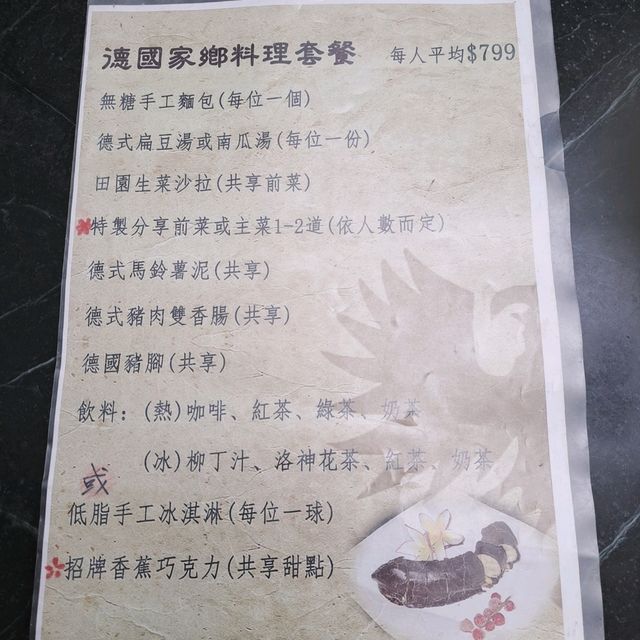 德國家鄉料理套餐 每人平均$799
無糖手工麵包(每位一個)
德式扁豆湯或南瓜湯(每位一份)
田園生菜沙拉(共享前菜)
※特製分享前菜或主菜1-2道(依人數而定)
德式馬鈴薯泥(共享)
德式豬肉雙香腸(共享)
德國豬腳(共享)
飲料：(熱)咖啡、紅茶、綠茶、奶茶
(冰)柳丁汁、洛神花茶、紅茶、奶茶
或
低脂手工冰淇淋(每位一球)
※招牌香蕉巧克力(共享甜點)